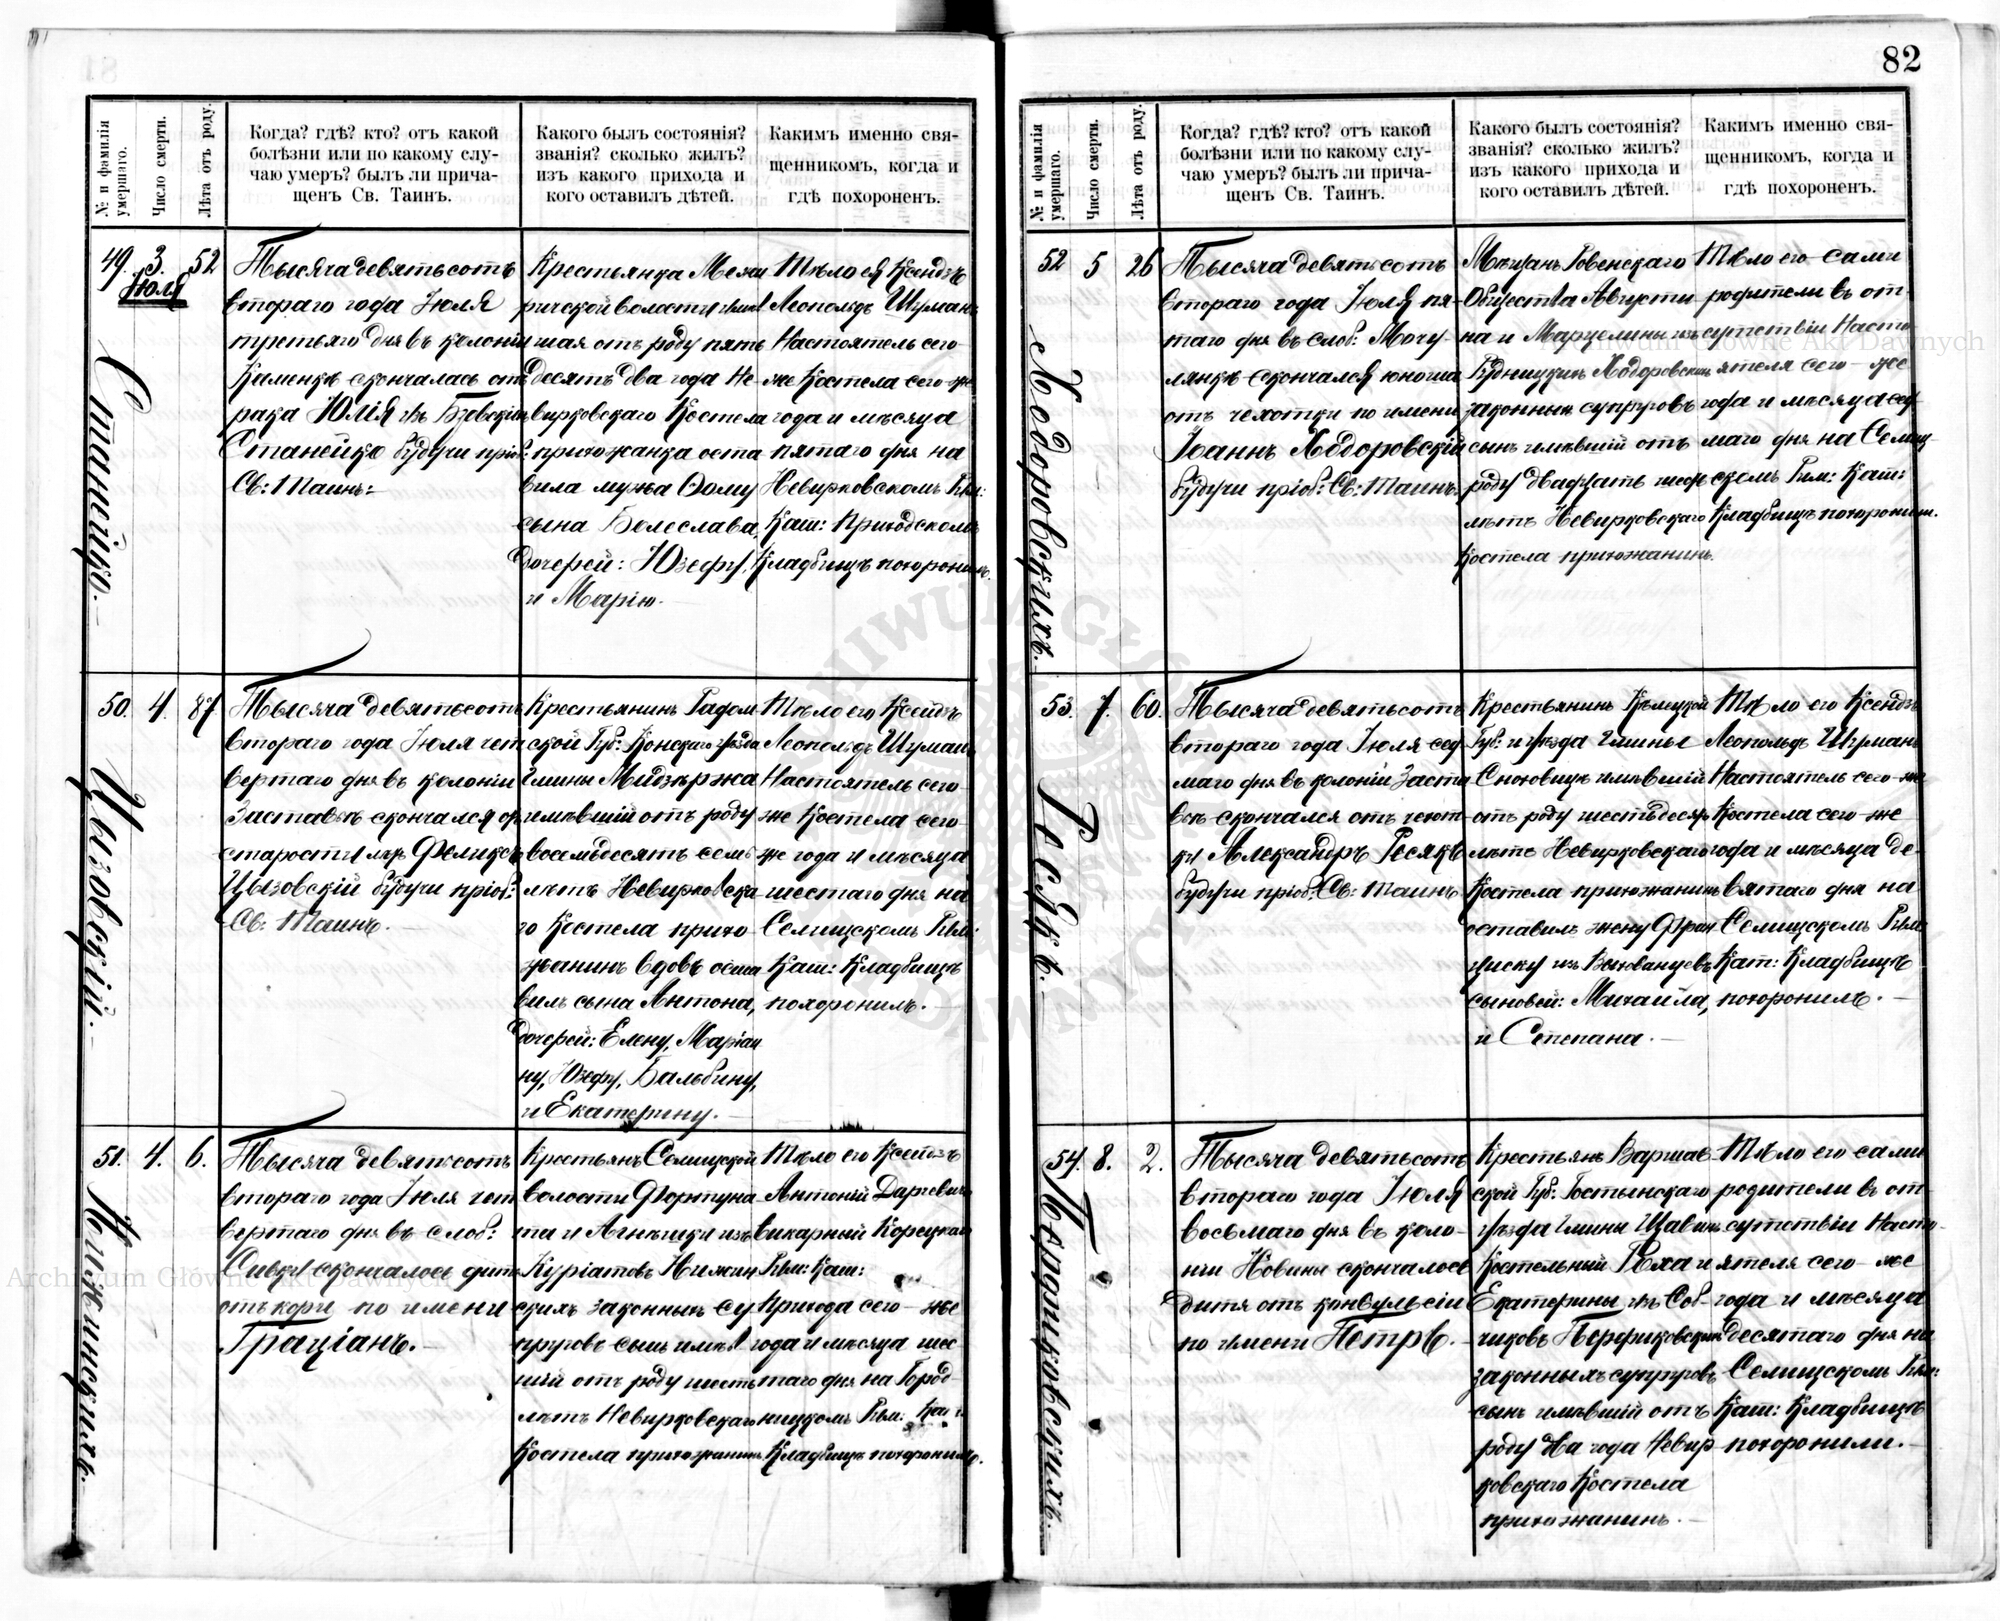 82
№ и фамилія
умершаго.
Число смерти.
Лѣта отъ роду.
Когда? гдѣ? кто? отъ какой
болѣзни или по какому слу-
чаю умеръ? былъ ли прича-
щенъ Св. Таинъ.
Какого былъ состоянія?
званія? сколько жилъ?
изъ какого прихода и
кого оставилъ дѣтей.
Какимъ именно свя-
щенникомъ, когда и
гдѣ похороненъ.
49.
3.
Іюля
52
Станейко.
Тысяча девятьсотъ
втораго года Іюля
третьяго дня въ колоніи
Каменкѣ скончалась отъ
рака Юлія изъ
Станейко будучи пріоб:
Св: Таинъ.
Крестьянка Межи
ричской волости имѣв
шая отъ роду пять
десятъ два года Не
вирковскаго Костела
прихожанка оста
вила мужа Ѳому
сына Болеслава,
дочерей: Юзефу,
и Марію.
Тѣло ея Ксендзъ
Леопольдъ Шуманъ
Настоятель сего
же Костела сего же
года и мѣсяца
пятаго дня на
Невирковскомъ Рим:
Кат: Приходскомъ
Кладбищѣ похоронилъ.
50.
4.
87
Цызовскій.
Тысяча девятьсотъ
втораго года Іюля чет
вертаго дня въ колоніи
Заставьѣ скончался отъ
старости Феликсъ
Цызовскій будучи пріоб:
Св: Таинъ.
Крестьянинъ Радом
ской Губ: Конскаго уѣзда
Гмины Мидзѣржа
имѣвшій отъ роду
восемьдесятъ семь
лѣтъ Невирковска
го Костела прихо
жанинъ вдовъ оста
вилъ сына Антона,
дочерей: Елену, Маріан
ну, Юзефу, Бальбину,
и Екатерину.
Тѣло его Ксендзъ
Леопольдъ Шуманъ
Настоятель сего
же Костела сего
же года и мѣсяца
шестаго дня на
Селищскомъ Рим:
Кат: Кладбищѣ
похоронилъ.
51.
4.
6.
Нижинскихъ.
Тысяча девятьсотъ
втораго года Іюля чет
вертаго дня въ слоб:
скончалось дитя
отъ кори по имени
Граціанъ.
Крестьянъ Селищской
волости Фортуна
та и Агнѣшки изъ
Куріатовъ Нижин
скихъ законныхъ су
пруговъ сынъ имѣв
шій отъ роду шесть
лѣтъ Невирковскаго
Костела прихожанинъ.
Тѣло его Ксендзъ
Антоній
викарный Корецкаго
Рим: Кат:
Прихода сего же
года и мѣсяца шес
таго дня на Город
ницкомъ Рим: Кат:
Кладбищѣ похоронилъ.
№ и фамилія
умершаго.
Число смерти.
Лѣта отъ роду.
Когда? гдѣ? кто? отъ какой
болѣзни или по какому слу-
чаю умеръ? былъ ли прича-
щенъ Св. Таинъ.
Какого былъ состоянія?
званія? сколько жилъ?
изъ какого прихода и
кого оставилъ дѣтей.
Какимъ именно свя-
щенникомъ, когда и
гдѣ похороненъ.
52
5
26
Ходоровскихъ.
Тысяча девятьсотъ
втораго года Іюля пя-
таго дня въ слоб: Мочу-
лянкѣ скончался юноша
отъ чахотки по имени
Іоаннъ Ходоровскій
будучи пріоб: Св: Таинъ.
Мѣщанъ Ровенскаго
Общества Августи
на и Марцелины изъ
Ходоровскихъ
законныхъ супруговъ
сынъ имѣвшій отъ
роду двадцать шесть
лѣтъ Невирковскаго
Костела прихожанинъ.
Тѣло его сами
родители въ от-
сутствіи Насто-
ятеля сего же
года и мѣсяца седь
маго дня на Селищ-
скомъ Рим: Кат:
Кладбищѣ похоронили.
53.
7.
60.
Росякъ.
Тысяча девятьсотъ
втораго года Іюля седь
маго дня въ колоніи Заста
вьѣ скончался отъ чахот
ки Александръ Росякъ
будучи пріоб: Св: Таинъ
Крестьянинъ Кѣлецкой
Губ: и уѣзда гмины
имѣвшій
отъ роду шестьдесятъ
лѣтъ Невирковскаго
Костела прихожанинъ
оставилъ жену Фран
циску изъ
сыновей: Михаила,
и Степана.
Тѣло его Ксендзъ
Леопольдъ Шуманъ
Настоятель сего же
Костела сего же
года и мѣсяца де
вятаго дня на
Селищскомъ Рим:
Кат: Кладбищѣ
похоронилъ.
54.
8.
2.
Пардиковскихъ.
Тысяча девятьсотъ
втораго года Іюля
восьмаго дня въ коло-
ніи Новины скончалось
дитя отъ конвульсіи
по имени Петръ.
Крестьянъ Варшав-
ской Губ: Гостынскаго
уѣзда Гмины Щавинъ
Костельный Роха и
Екатерины изъ Соб-
чиковъ
законныхъ супруговъ
сынъ имѣвшій отъ
роду два года Невир
ковскаго Костела
прихожанинъ.
Тѣло его сами
родители въ от
сутствіи Насто-
ятеля сего же
года и мѣсяца
десятаго дня на
Селищскомъ Рим:
Кат: Кладбищѣ
похоронили.
Archiwum Główne Akt Dawnych
Archiwum Główne Akt Dawnych